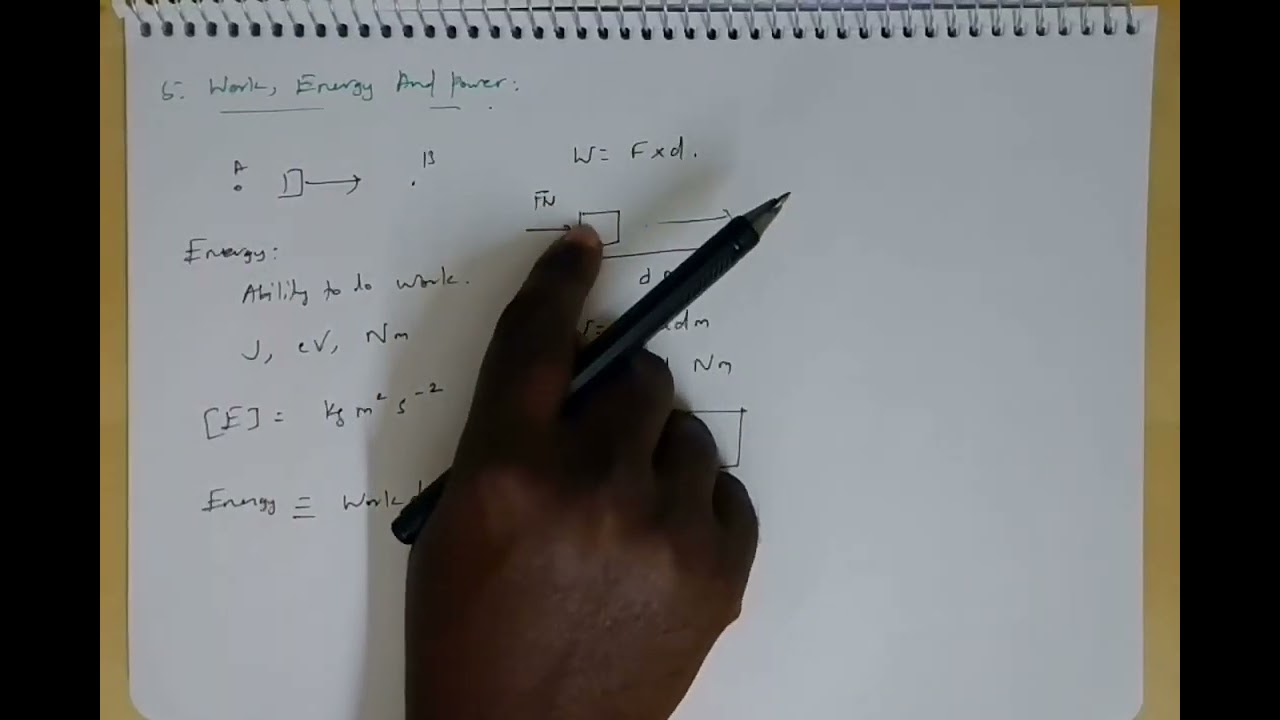 5. Work, Energy And Power:
A
B
W = F x d.
FN
Energy:
Ability to do work.
d
J, eV, Nm
dm
Nm
[E] = kg m² s⁻²
Energy ≡ Work